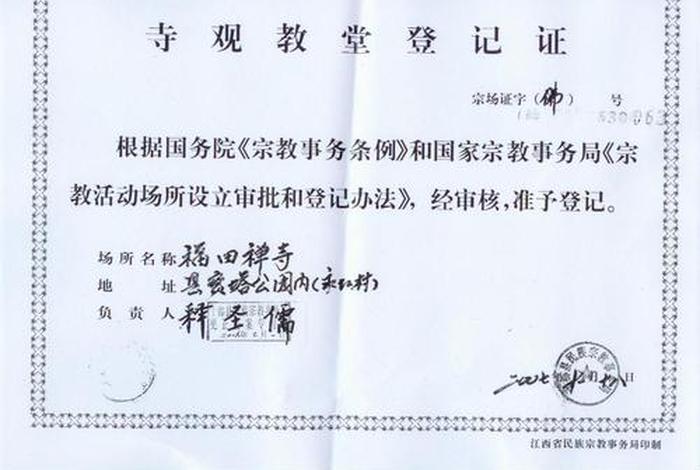 寺观教堂登记证
宗场证字（佛） 号
根据国务院《宗教事务条例》和国家宗教事务局《宗
教活动场所设立审批和登记办法》，经审核，准予登记。
场所名称 福田禅寺
地址 县宝塔公园内（永红村）
负责人 释圣儒
二〇〇七 月 日
江西省民族宗教事务局印制